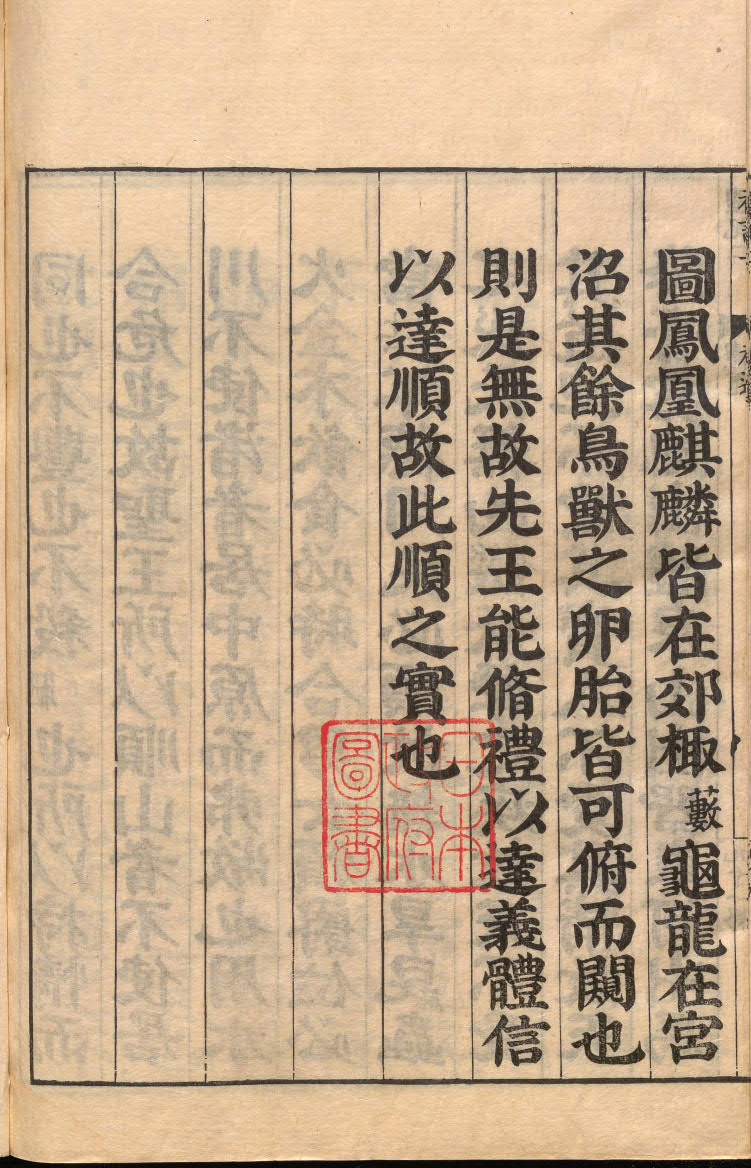 圖鳳凰麒麟皆在郊棷藪龜龍在宮
沼其餘鳥獸之卵胎皆可俯而闚也
則是無故先王能脩禮以達義體信
以達順故此順之實也
日本
政府
圖書